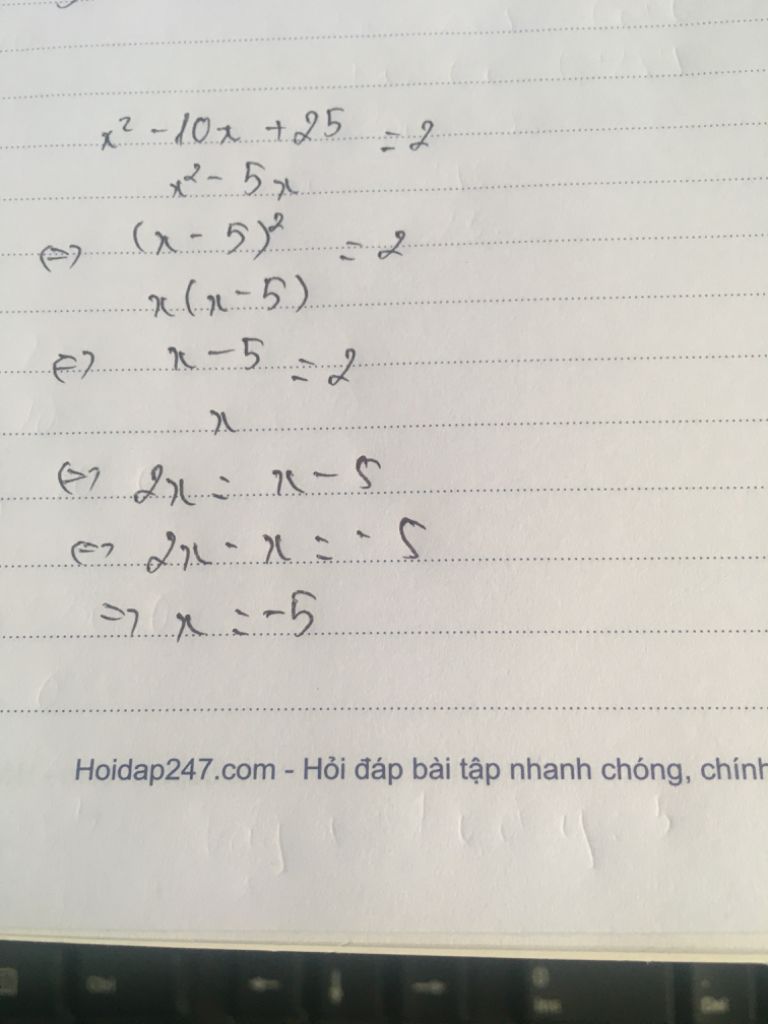 x² - 10x + 25 = 2
x² - 5x
⇔ (x - 5)² = 2
x(x - 5)
⇔ x - 5 = 2
x
⇔ 2x = x - 5
⇔ 2x - x = - 5
⇒ x = -5
Hoidap247.com - Hỏi đáp bài tập nhanh chóng, chính